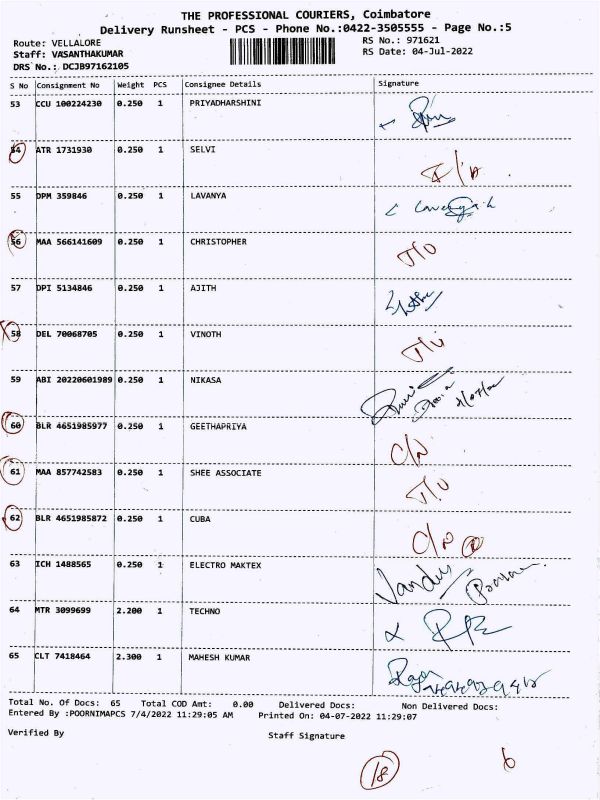 THE PROFESSIONAL COURIERS, Coimbatore
Delivery Runsheet - PCS - Phone No.:0422-3505555 - Page No.:5
Route: VELLALORE RS No.: 971621
Staff: VASANTHAKUMAR RS Date: 04-Jul-2022
DRS No.: DCJB97162105
S No Consignment No Weight PCS Consignee Details Signature
53 CCU 100224230 0.250 1 PRIYADHARSHINI
54 ATR 1731930 0.250 1 SELVI
55 DPM 359846 0.250 1 LAVANYA
56 MAA 566141609 0.250 1 CHRISTOPHER
57 DPI 5134846 0.250 1 AJITH
58 DEL 70068705 0.250 1 VINOTH
59 ABI 20220601989 0.250 1 NIKASA
60 BLR 4651985977 0.250 1 GEETHAPRIYA C/N
61 MAA 857742583 0.250 1 SHEE ASSOCIATE
62 BLR 4651985872 0.250 1 CUBA C/N
63 ICH 1488565 0.250 1 ELECTRO MAKTEX
64 MTR 3099699 2.200 1 TECHNO
65 CLT 7418464 2.300 1 MAHESH KUMAR
Total No. Of Docs: 65 Total COD Amt: 0.00 Delivered Docs: Non Delivered Docs:
Entered By :POORNIMAPCS 7/4/2022 11:29:05 AM Printed On: 04-07-2022 11:29:07
Verified By Staff Signature
18 6